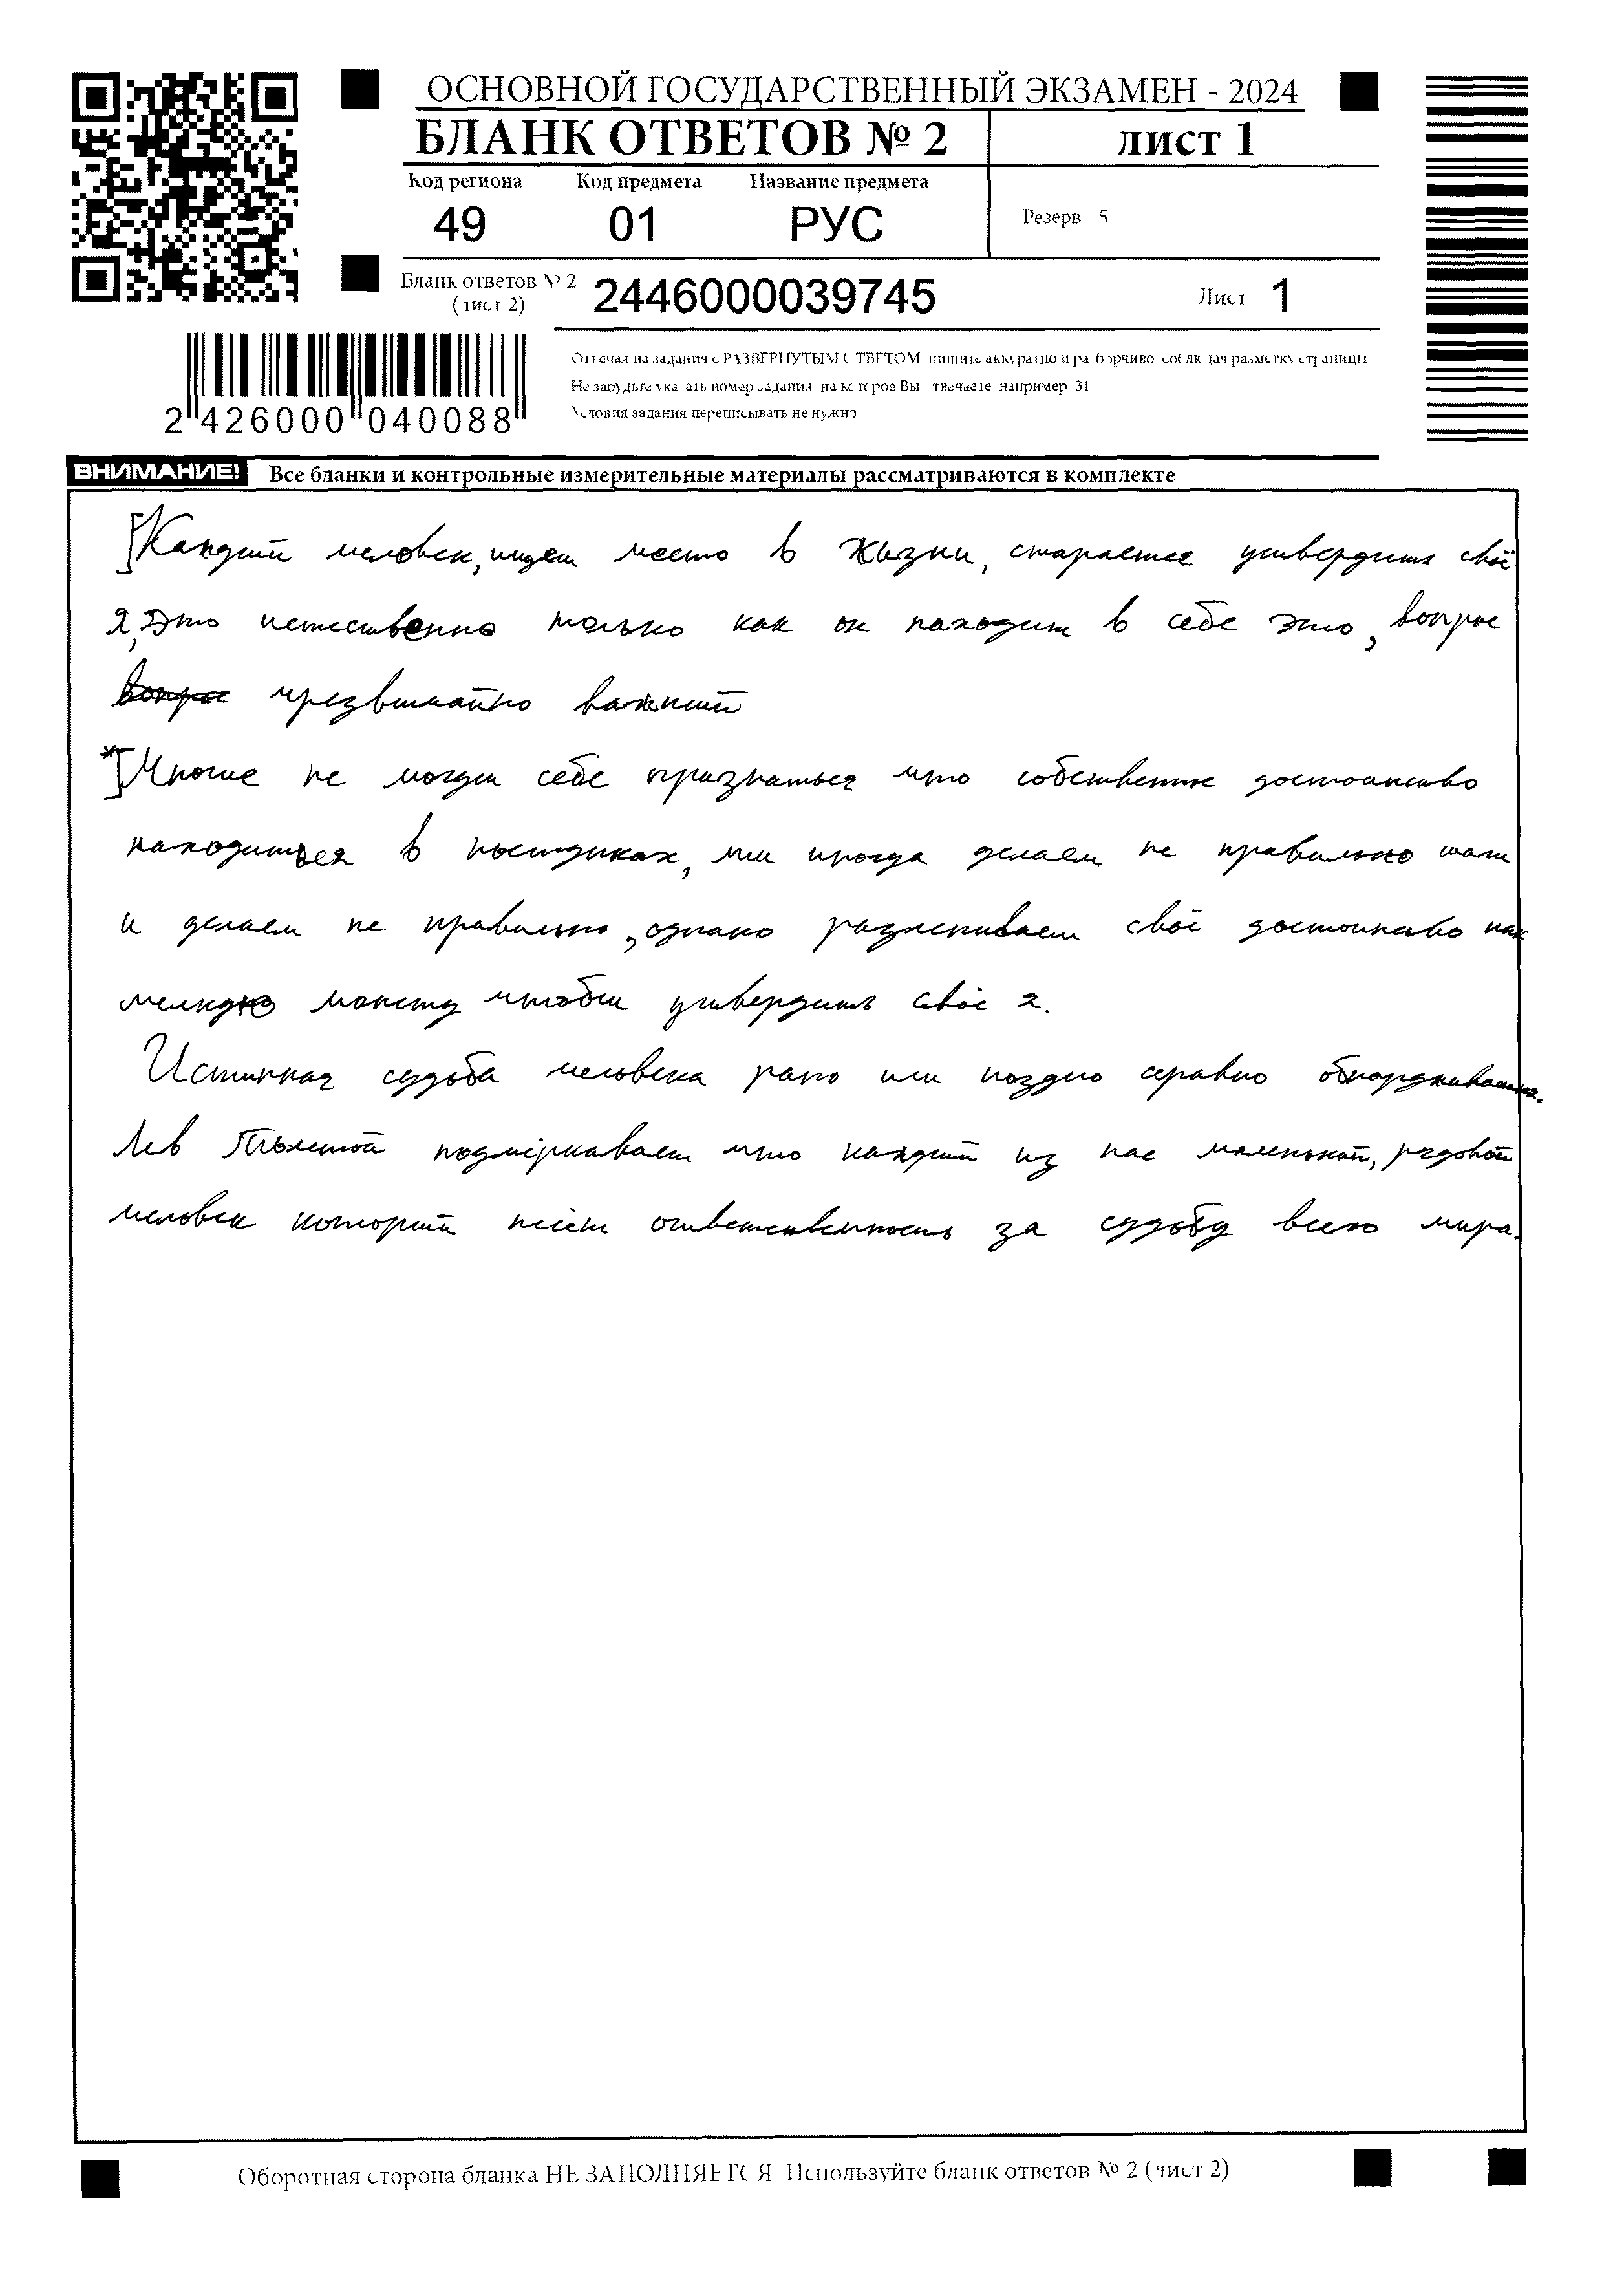 ОСНОВНОЙ ГОСУДАРСТВЕННЫЙ ЭКЗАМЕН - 2024
БЛАНК ОТВЕТОВ № 2 лист 1
Код региона Код предмета Название предмета
49 01 РУС
Резерв 5
Бланк ответов № 2
(лист 2)
2446000039745 Лист 1
Отвечая на задания с РАЗВЕРНУТЫМ ОТВЕТОМ пишите аккуратно и разборчиво соблюдая разметку страницы
Не забудьте указать номер задания на которое Вы отвечаете например 31
Условия задания переписывать не нужно
2 426000 040088
ВНИМАНИЕ! Все бланки и контрольные измерительные материалы рассматриваются в комплекте
Каждый человек, ищет место в жизни, старается утвердить своё
я, Это естественно только как он находит в себе это, вопрос
чрезвычайно важный
Многие не могут себе признаться что собственное достоинство
находиться в поступках, мы иногда делаем не правильно шаги
и делаем не правильно, однако разменеваем своё достоинство как
мелкую монету чтобы утвердить своё я.
Истинная судьба человека рано или поздно серавно обноруживается.
Лев Толстой подчёркивает что каждый из нас маленький, рядовой
человек который несёт ответственность за судьбу всего мира.
Оборотная сторона бланка НЕ ЗАПОЛНЯЕТСЯ Используйте бланк ответов № 2 (лист 2)